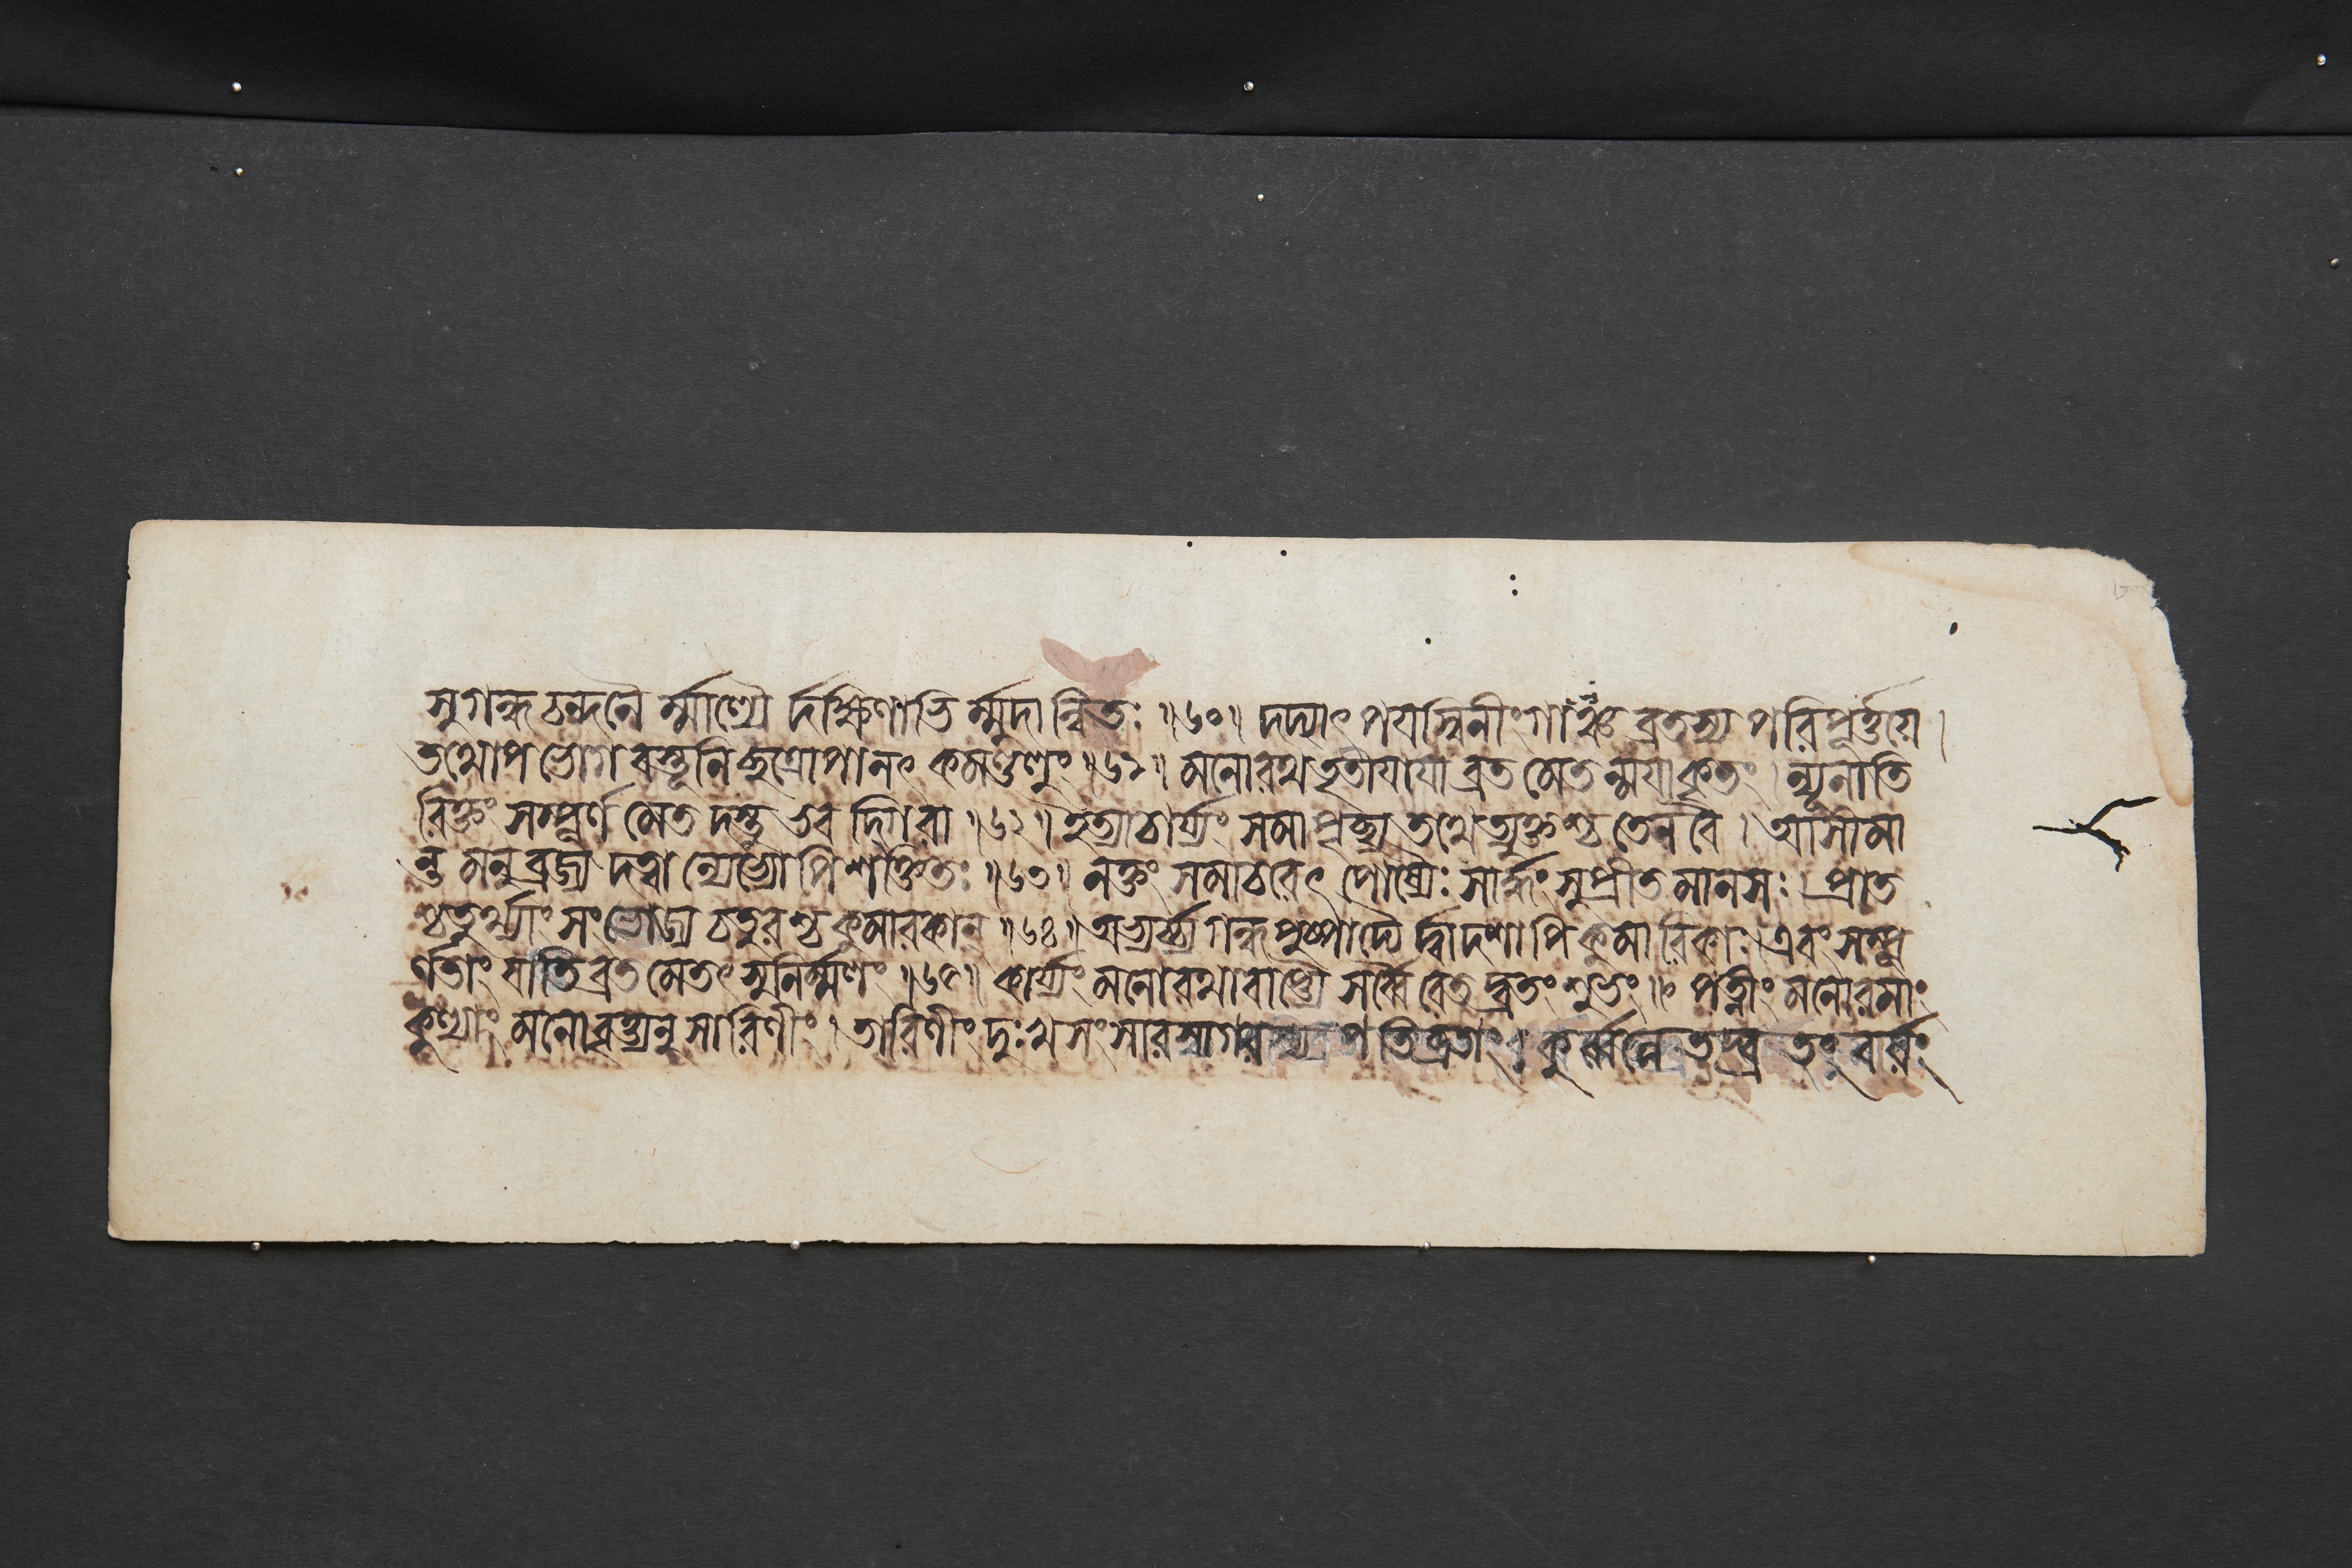 সুগন্ধচন্দনৈর্ম্মাল্যৈর্দক্ষিণাভির্ম্মুদান্বিতঃ ॥৬০॥ দদ্যাৎ পয়স্বিনীং গাঞ্চ ব্রতস্য পরিপূর্ত্তয়ে ।
তথোপভোগবস্তূনি ছত্রোপানৎ কমণ্ডলুং ॥৬১॥ মনোরথতৃতীয়ায়া ব্রতমেতন্ময়াকৃতং । ন্যূনাতি
রিক্তং সম্পূর্ণমেতদস্তু ভবদ্গিরা ॥৬২॥ ইত্যাচার্য্যং সমাপৃচ্ছ্য তথেত্যুক্তশ্চ তেন বৈ । আসীমা
ন্তমনুব্রজ্য দত্বান্যেভ্যোপি শক্তিতঃ ॥৬৩॥ নক্তং সমাচরেৎ পোষ্যৈঃ সার্দ্ধং সুপ্রীতমানসঃ । প্রাত
শ্চতুর্থ্যাং সংভোজ্য চতুরশ্চ কুমারকান্ ॥৬৪॥ অভ্যর্চ্চ্য গন্ধপুষ্পাদ্যৈর্দ্বাদশাপি কুমারিকাঃ । এবং সম্পূ
র্ণতাং যাতি ব্রতমেতৎ সুনির্ম্মলং ॥৬৫॥ কার্য্যং মনোরথাবাপ্ত্যৈ সর্ব্বৈরেতদ্ব্রতং শুভং ॥ পত্নীং মনোরমাং
কুল্যাং মনোবৃত্ত্যনুসারিণীং । তারিণীং দুঃখসংসারসাগরস্য পতিব্রতাং । কুর্ব্বন্নেতদ্ব্রতং বর্ষং